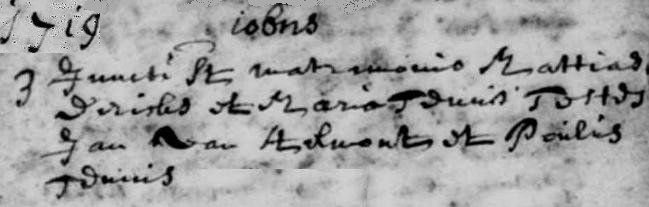 1719 iobris
3 Juncti st matrimonio Mattias
Dericks et Maria Teunis Testes
Jan Van Helmont et Poulis
Teunis